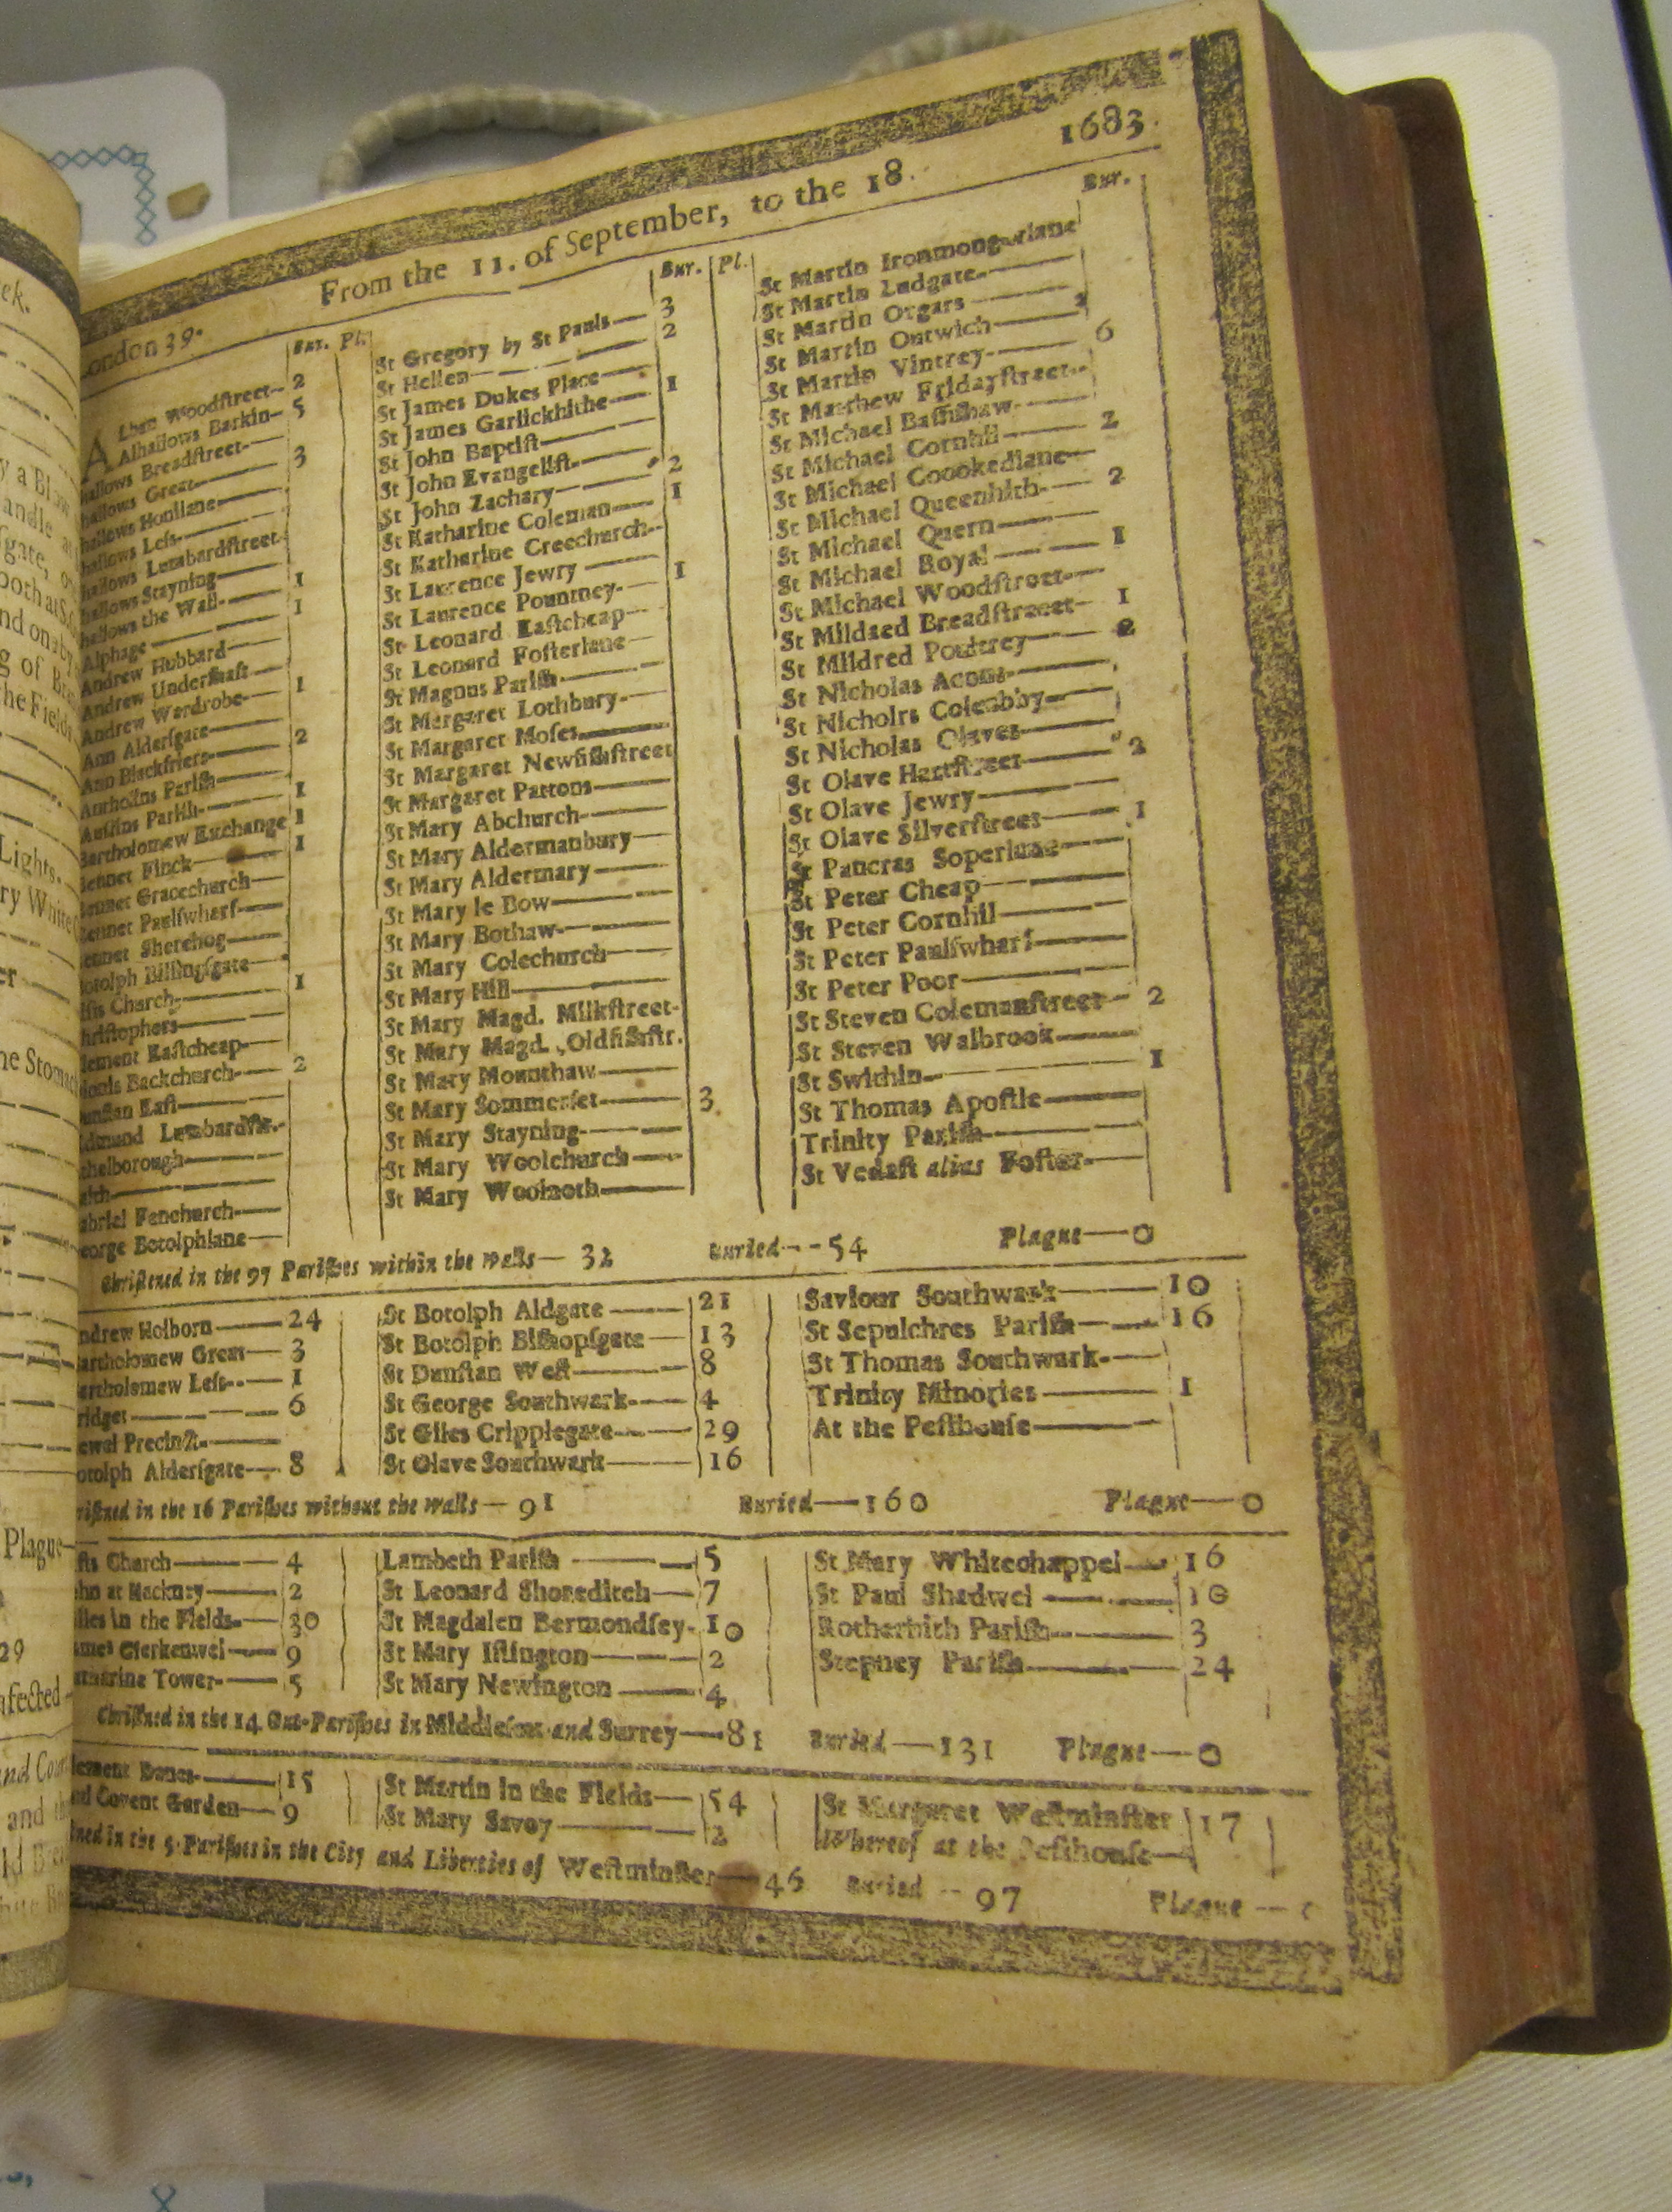 1683.
From the 11. of September, to the 18.
ondon 39.
Bur. Pl.
Lban Woodſtreet 2
Alhallows Barkin 5
hallows Breadſtreet
hallows Great 3
hallows Honilane
hallows Leſs
hallows Lumbardſtreet
hallows Stayning 1
hallows the Wall 1
Alphage
Andrew Hubbard
Andrew Underſhaft
Andrew Wardrobe 1
Ann Alderſgate
Ann Blackfriers 2
Antholins Pariſh
Auſtins Pariſh 1
Bartholomew Exchange 1
Bennet Finck 1
Bennet Gracechurch
Bennet Paulſwharf
ennet Sherehog
otolph Billingſgate
iſts Church 1
hriſtophers
lement Eaſtcheap
ionis Backchurch 2
unſtan Eaſt
dmund Lumbardſtr.
thelborough
aith
abriel Fenchurch
eorge Botolphlane
Bur. Pl.
St Gregory by St Pauls 3
St Hellen 2
St James Dukes Place
St James Garlickhithe 1
St John Baptiſt
St John Evangeliſt
St John Zachary 2
St Katharine Coleman 1
St Katharine Creechurch
St Laurence Jewry
St Laurence Pountney 1
St Leonard Eaſtcheap
St Leonard Foſterlane
St Magnus Pariſh
St Margaret Lothbury
St Margaret Moſes
St Margaret Newfiſhſtreet
St Margaret Pattons
St Mary Abchurch
St Mary Aldermanbury
St Mary Aldermary
St Mary le Bow
St Mary Bothaw
St Mary Colechurch
St Mary Hill
St Mary Magd. Milkſtreet
St Mary Magd. Oldfiſhſtr.
St Mary Mounthaw
St Mary Sommerſet 3
St Mary Stayning
St Mary Woolchurch
St Mary Woolnoth
Bur.
St Martin Ironmongerlane
St Martin Ludgate
St Martin Orgars
St Martin Outwich
St Martin Vintrey 6
St Matthew Fridayſtreet
St Michael Baſſiſhaw
St Michael Cornhil 2
St Michael Coookedlane
St Michael Queenhith 2
St Michael Quern
St Michael Royal 1
St Michael Woodſtreet
St Mildred Breadſtreet 1
St Mildred Poultrey 2
St Nicholas Acons
St Nicholrs Coleabby
St Nicholas Olaves
St Olave Hartſtreet 2
St Olave Jewry
St Olave Silverſtreet 1
St Pancras Soperlane
St Peter Cheap
St Peter Cornhil
St Peter Paulſwharf
St Peter Poor
St Steven Colemanſtreet 2
St Steven Walbrook
St Swithin 1
St Thomas Apoſtle
Trinity Pariſh
St Vedaſt alias Foſter
Chriſtned in the 97 Pariſhes within the walls— 32 Buried--54 Plague—0
ndrew Holborn 24
artholomew Great 3
artholomew Leſs 1
ridget 6
ewel Precinct
otolph Alderſgate 8
St Botolph Aldgate 21
St Botolph Biſhopſgate 13
St Dunſtan Weſt 8
St George Southwark 4
St Giles Cripplegate 29
St Olave Southwark 16
Saviour Southwark 10
St Sepulchres Pariſh 16
St Thomas Southwark
Trinity Minories 1
At the Peſthouſe
riſtned in the 16 Pariſhes without the walls— 91 Buried—160 Plague—0
ſts Church 4
ohn at Hackney 2
iles in the Fields 30
ames Clerkenwel 9
atharine Tower 5
Lambeth Pariſh 5
St Leonard Shoreditch 7
St Magdalen Bermondſey 10
St Mary Iſlington 2
St Mary Newington 4
St Mary Whitechappel 16
St Paul Shadwel 10
Rotherhith Pariſh 3
Stepney Pariſh 24
Chriſtned in the 14 Out-Pariſhes in Middleſex and Surrey—81 Buried—131 Plague—0
lement Danes 15
aul Covent Garden 9
St Martin in the Fields 54
St Mary Savoy 2
St Margaret Weſtminſter 17
Whereof at the Peſthouſe
ned in the 5 Pariſhes in the City and Liberties of Weſtminſter—46 Buried--97 Plague--